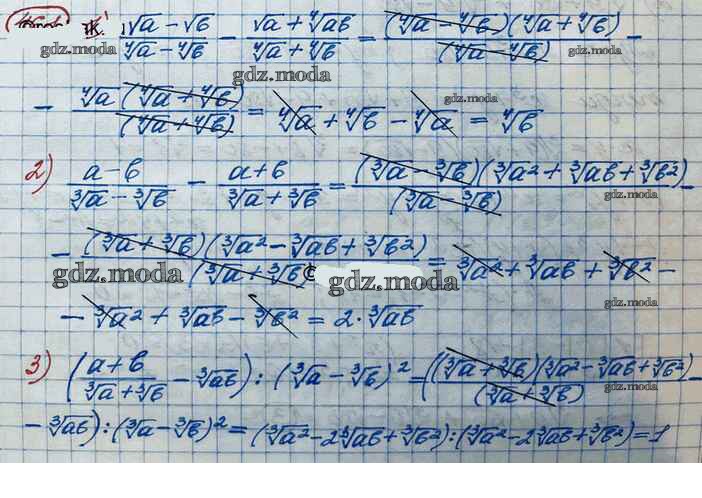 1) \frac{\sqrt{a} - \sqrt{b}}{\sqrt[4]{a} - \sqrt[4]{b}} - \frac{\sqrt{a} + \sqrt[4]{ab}}{\sqrt[4]{a} + \sqrt[4]{b}} = \frac{(\sqrt[4]{a} - \sqrt[4]{b})(\sqrt[4]{a} + \sqrt[4]{b})}{(\sqrt[4]{a} - \sqrt[4]{b})} -
gdz.moda gdz.moda gdz.moda
- \frac{\sqrt[4]{a}(\sqrt[4]{a} + \sqrt[4]{b})}{(\sqrt[4]{a} + \sqrt[4]{b})} = \sqrt[4]{a} + \sqrt[4]{b} - \sqrt[4]{a} = \sqrt[4]{b}
gdz.moda
2) \frac{a - b}{\sqrt[3]{a} - \sqrt[3]{b}} - \frac{a + b}{\sqrt[3]{a} + \sqrt[3]{b}} = \frac{(\sqrt[3]{a} - \sqrt[3]{b})(\sqrt[3]{a^2} + \sqrt[3]{ab} + \sqrt[3]{b^2})}{(\sqrt[3]{a} - \sqrt[3]{b})} -
gdz.moda
- \frac{(\sqrt[3]{a} + \sqrt[3]{b})(\sqrt[3]{a^2} - \sqrt[3]{ab} + \sqrt[3]{b^2})}{(\sqrt[3]{a} + \sqrt[3]{b}} = \sqrt[3]{a^2} + \sqrt[3]{ab} + \sqrt[3]{b^2} -
gdz.moda © gdz.moda gdz.moda
- \sqrt[3]{a^2} + \sqrt[3]{ab} - \sqrt[3]{b^2} = 2 \cdot \sqrt[3]{ab}
3) (\frac{a + b}{\sqrt[3]{a} + \sqrt[3]{b}} - \sqrt[3]{ab}) : (\sqrt[3]{a} - \sqrt[3]{b})^2 = (\frac{(\sqrt[3]{a} + \sqrt[3]{b})(\sqrt[3]{a^2} - \sqrt[3]{ab} + \sqrt[3]{b^2})}{(\sqrt[3]{a} + \sqrt[3]{b})} -
gdz.moda
- \sqrt[3]{ab}) : (\sqrt[3]{a} - \sqrt[3]{b})^2 = (\sqrt[3]{a^2} - 2\sqrt[3]{ab} + \sqrt[3]{b^2}) : (\sqrt[3]{a^2} - 2\sqrt[3]{ab} + \sqrt[3]{b^2}) = 1
gdz.moda gdz.moda